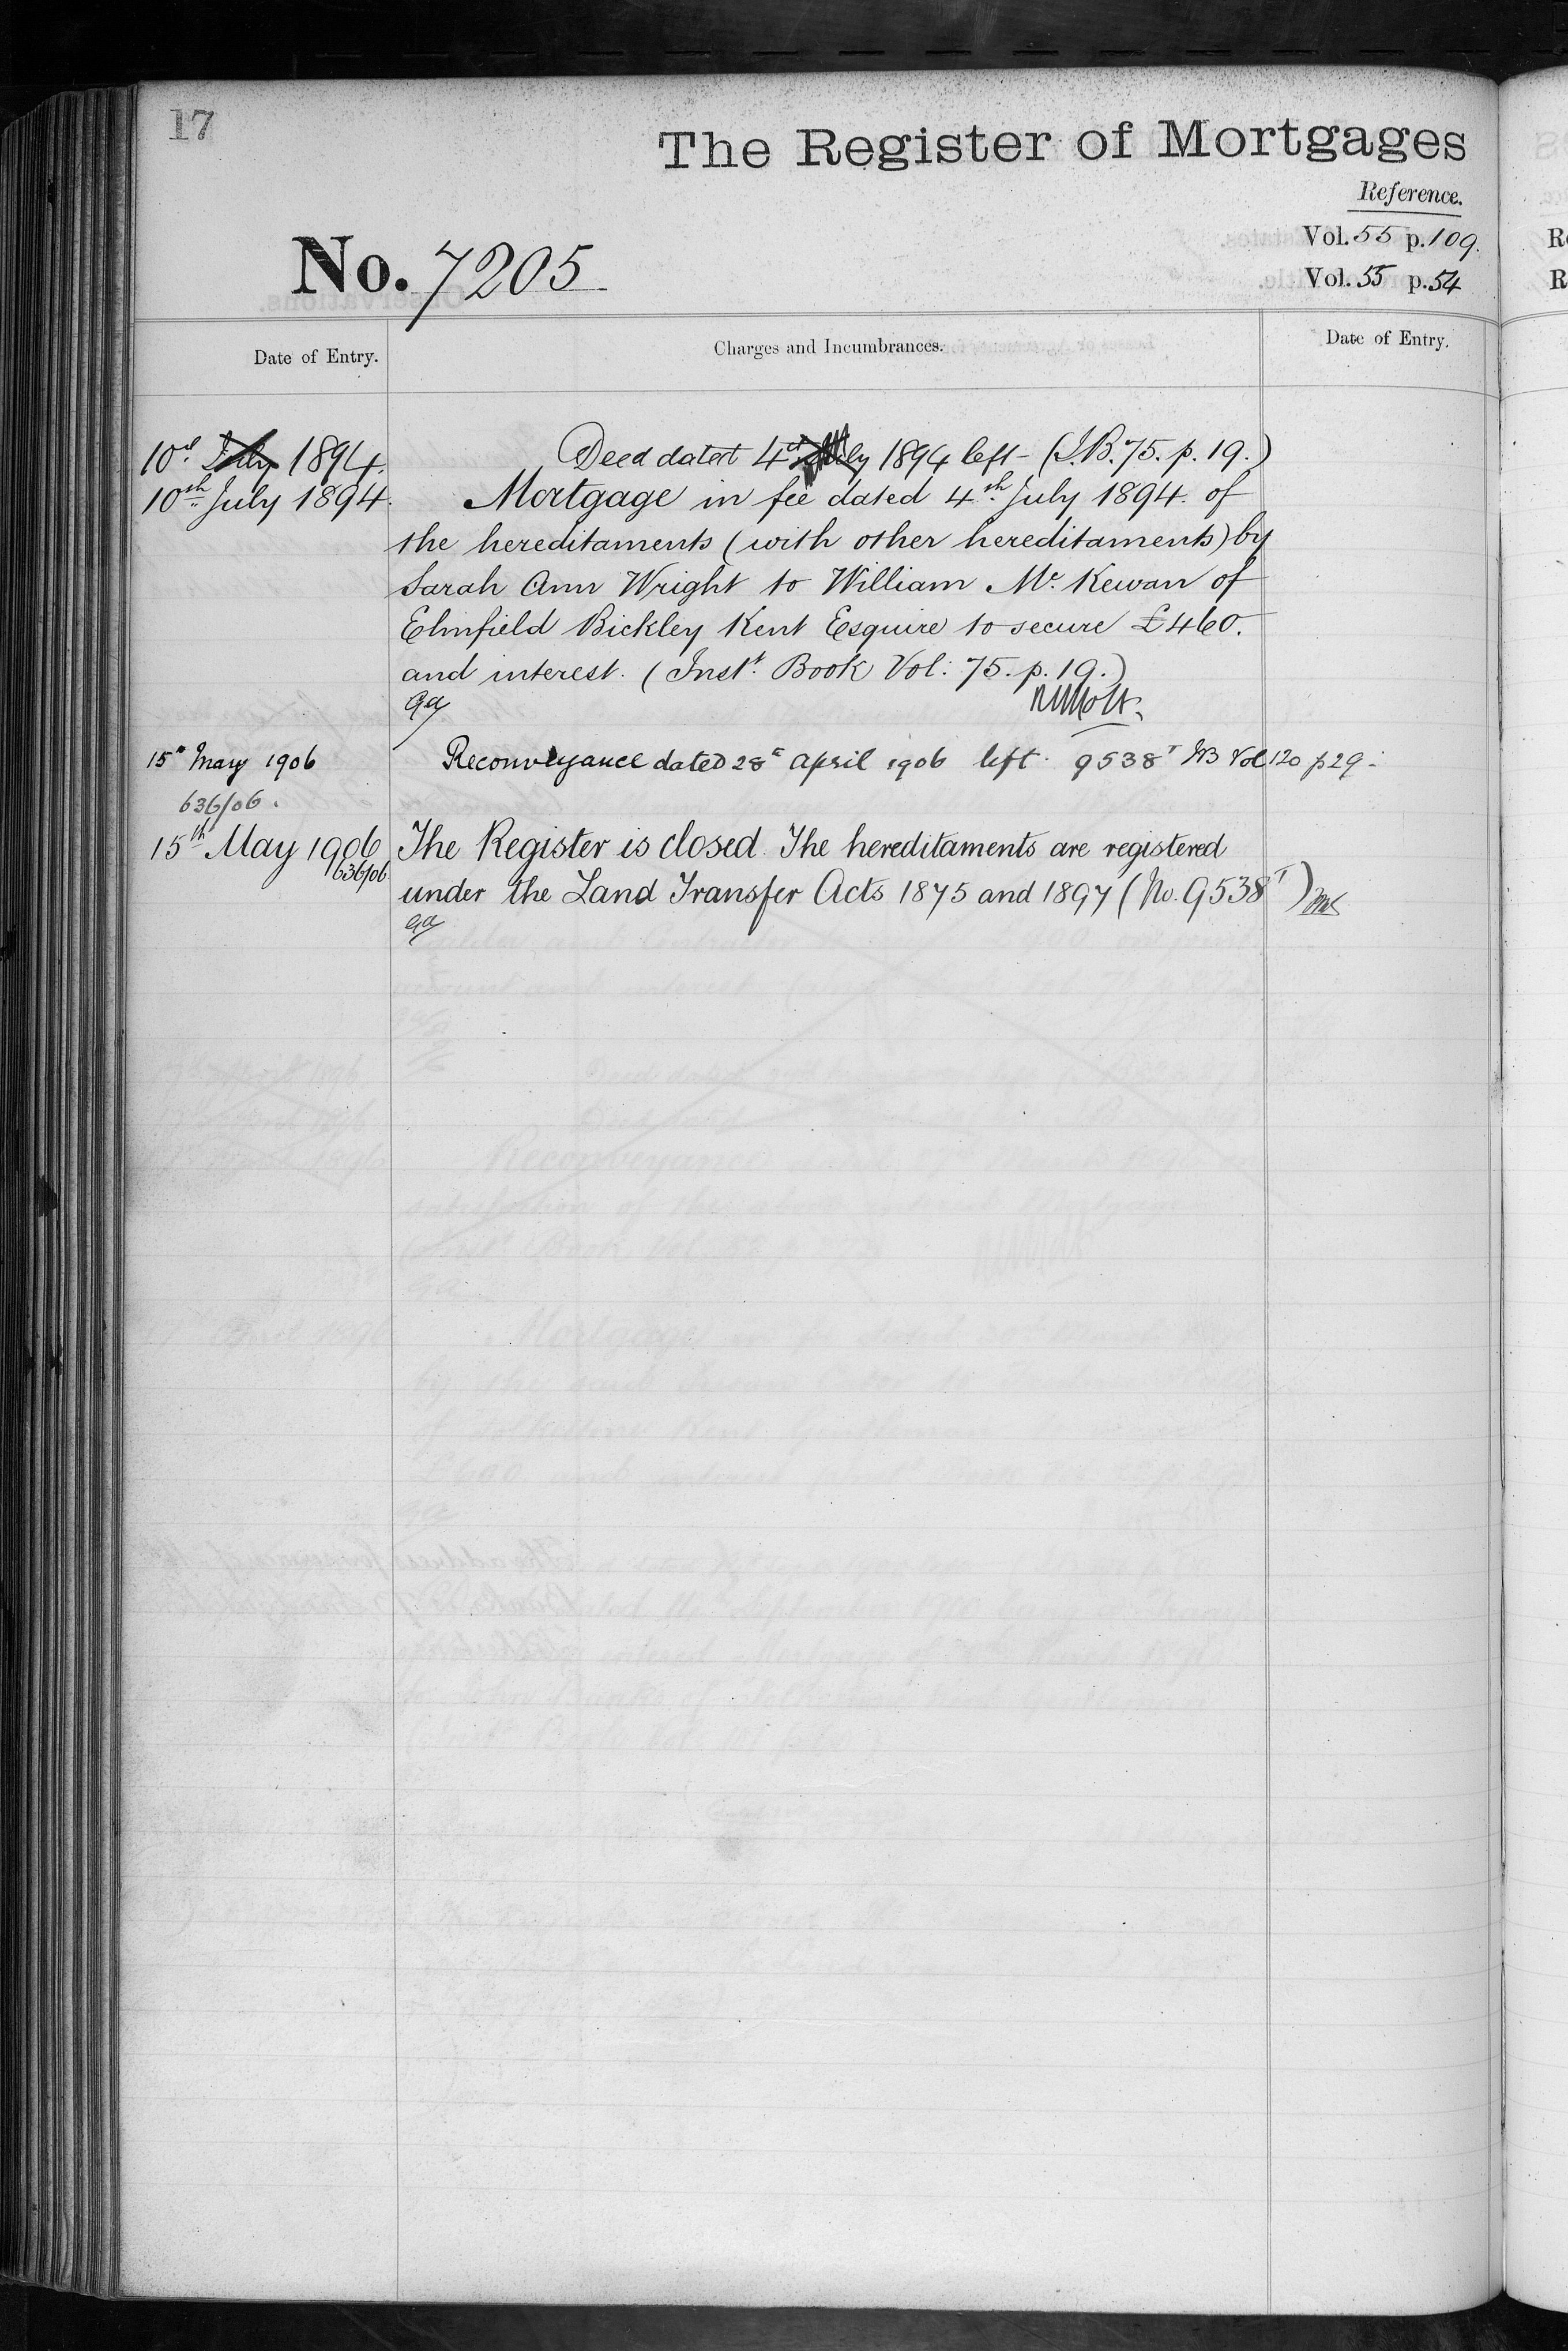 17
The Register of Mortgages
Reference.
Vol. 55 p. 109.
No. 7205
Vol. 55 p. 54
Date of Entry.
Charges and Incumbrances.
Date of Entry.
10th July 1894.
Deed dated 4th July 1894 left - (I.B. 75. p. 19.)
10th July 1894.
Mortgage in fee dated 4th July 1894. of
the hereditaments (with other hereditaments) by
Sarah Ann Wright to William Mc. Kewan of
Elmfield Bickley Kent Esquire to secure £460.
and interest. (Inst. Book Vol: 75. p. 19.)
15th May 1906
Reconveyance dated 28th April 1906 left. 9538T IB Vol 120 p 29.
636/06.
15th May 1906
The Register is closed. The hereditaments are registered
636/06
under the Land Transfer Acts 1875 and 1897 (No. 9538T)